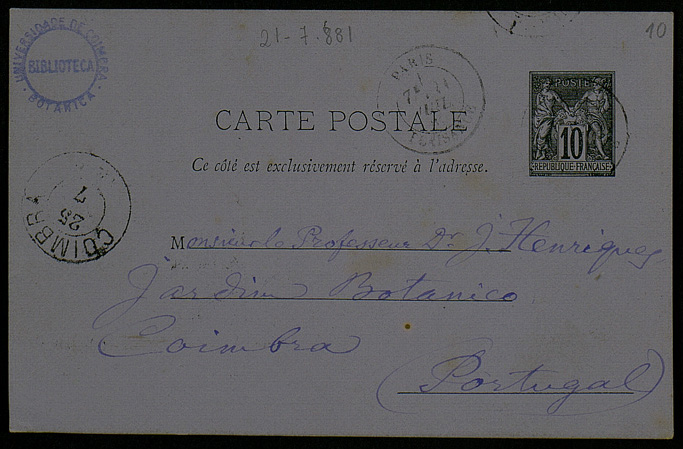 UNIVERSIDADE DE COIMBRA
BIBLIOTECA
BOTANICA
21-7.881
10
PARIS
CARTE POSTALE
Ce côté est exclusivement réservé à l'adresse.
POSTE
10
REPUBLIQUE FRANÇAISE
COIMBRA
25
7
Monsieur le Professeur Dr. J. Henriques
Jardim Botanico
Coimbra
(Portugal)